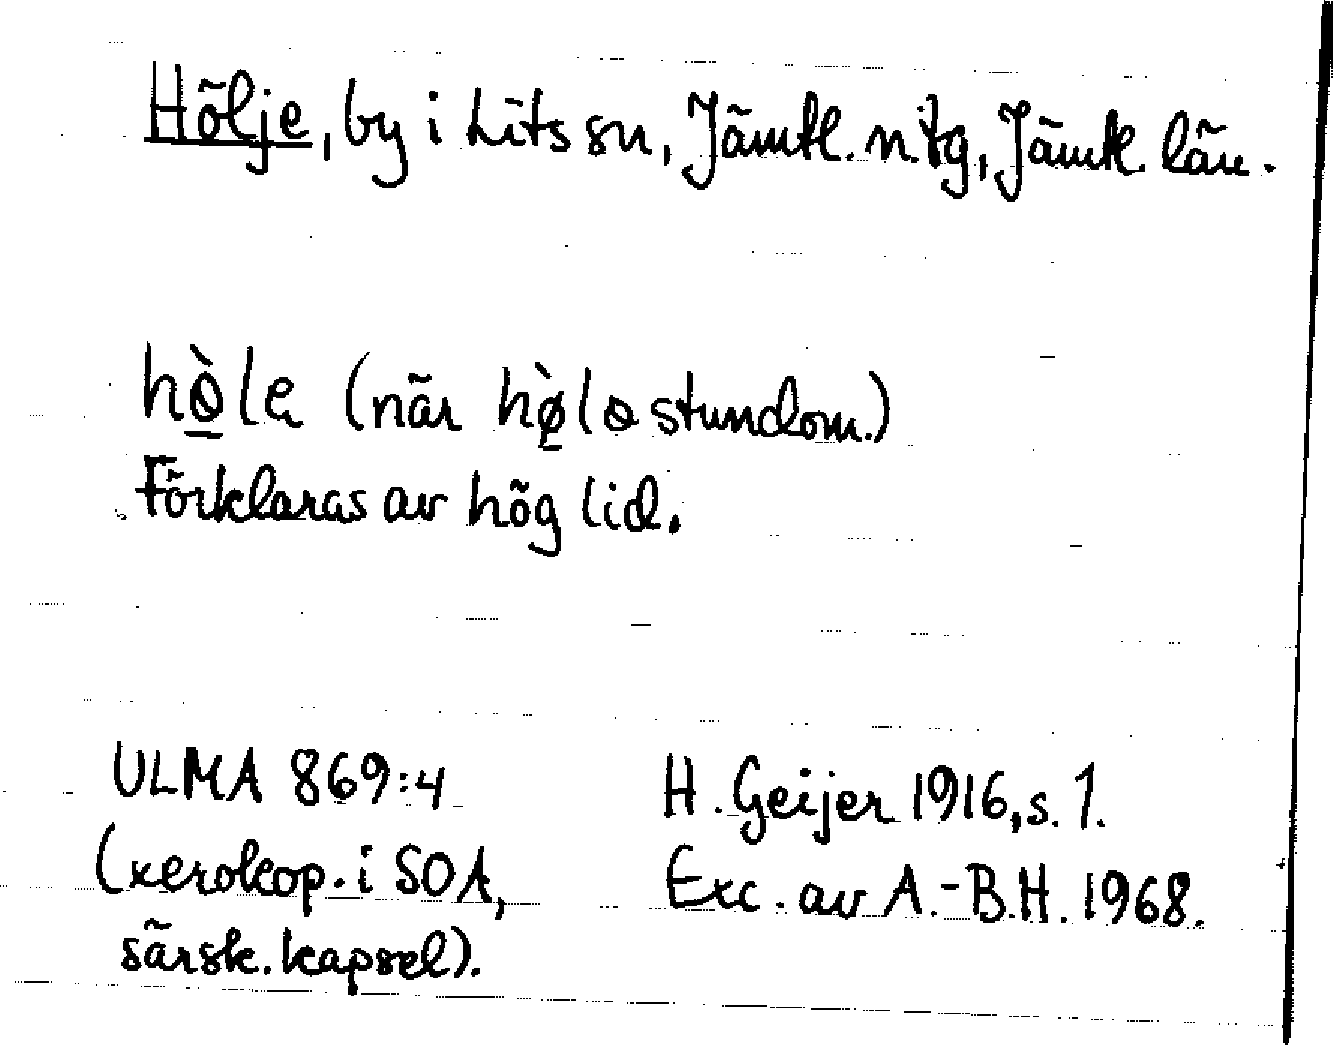 Hölje, by i Lits sn, Jämtl. n. tg, Jämtl. län.
hø̀le (när hø̀lə stundom.)
Förklaras av hög lid.
ULMA 869:4
(xerokop. i SOA,
särsk. kapsel).
H. Geijer 1916, s. 1.
Exc. av A.-B.H. 1968.